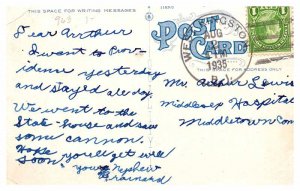 THIS SPACE FOR WRITING MESSAGES
Dear Arrthur
I want to Prov-
idense yesterday
and stayed all day.
We went to the
State-house and saw
some cannon.
Hope you'll get well
soon.
your Nephew
POST CARD
AUG
1935
R.I.
FOR ADDRESS ONLY
Mr. Arthur Lewis
Middlesex Hospital
Middletown Conn
1